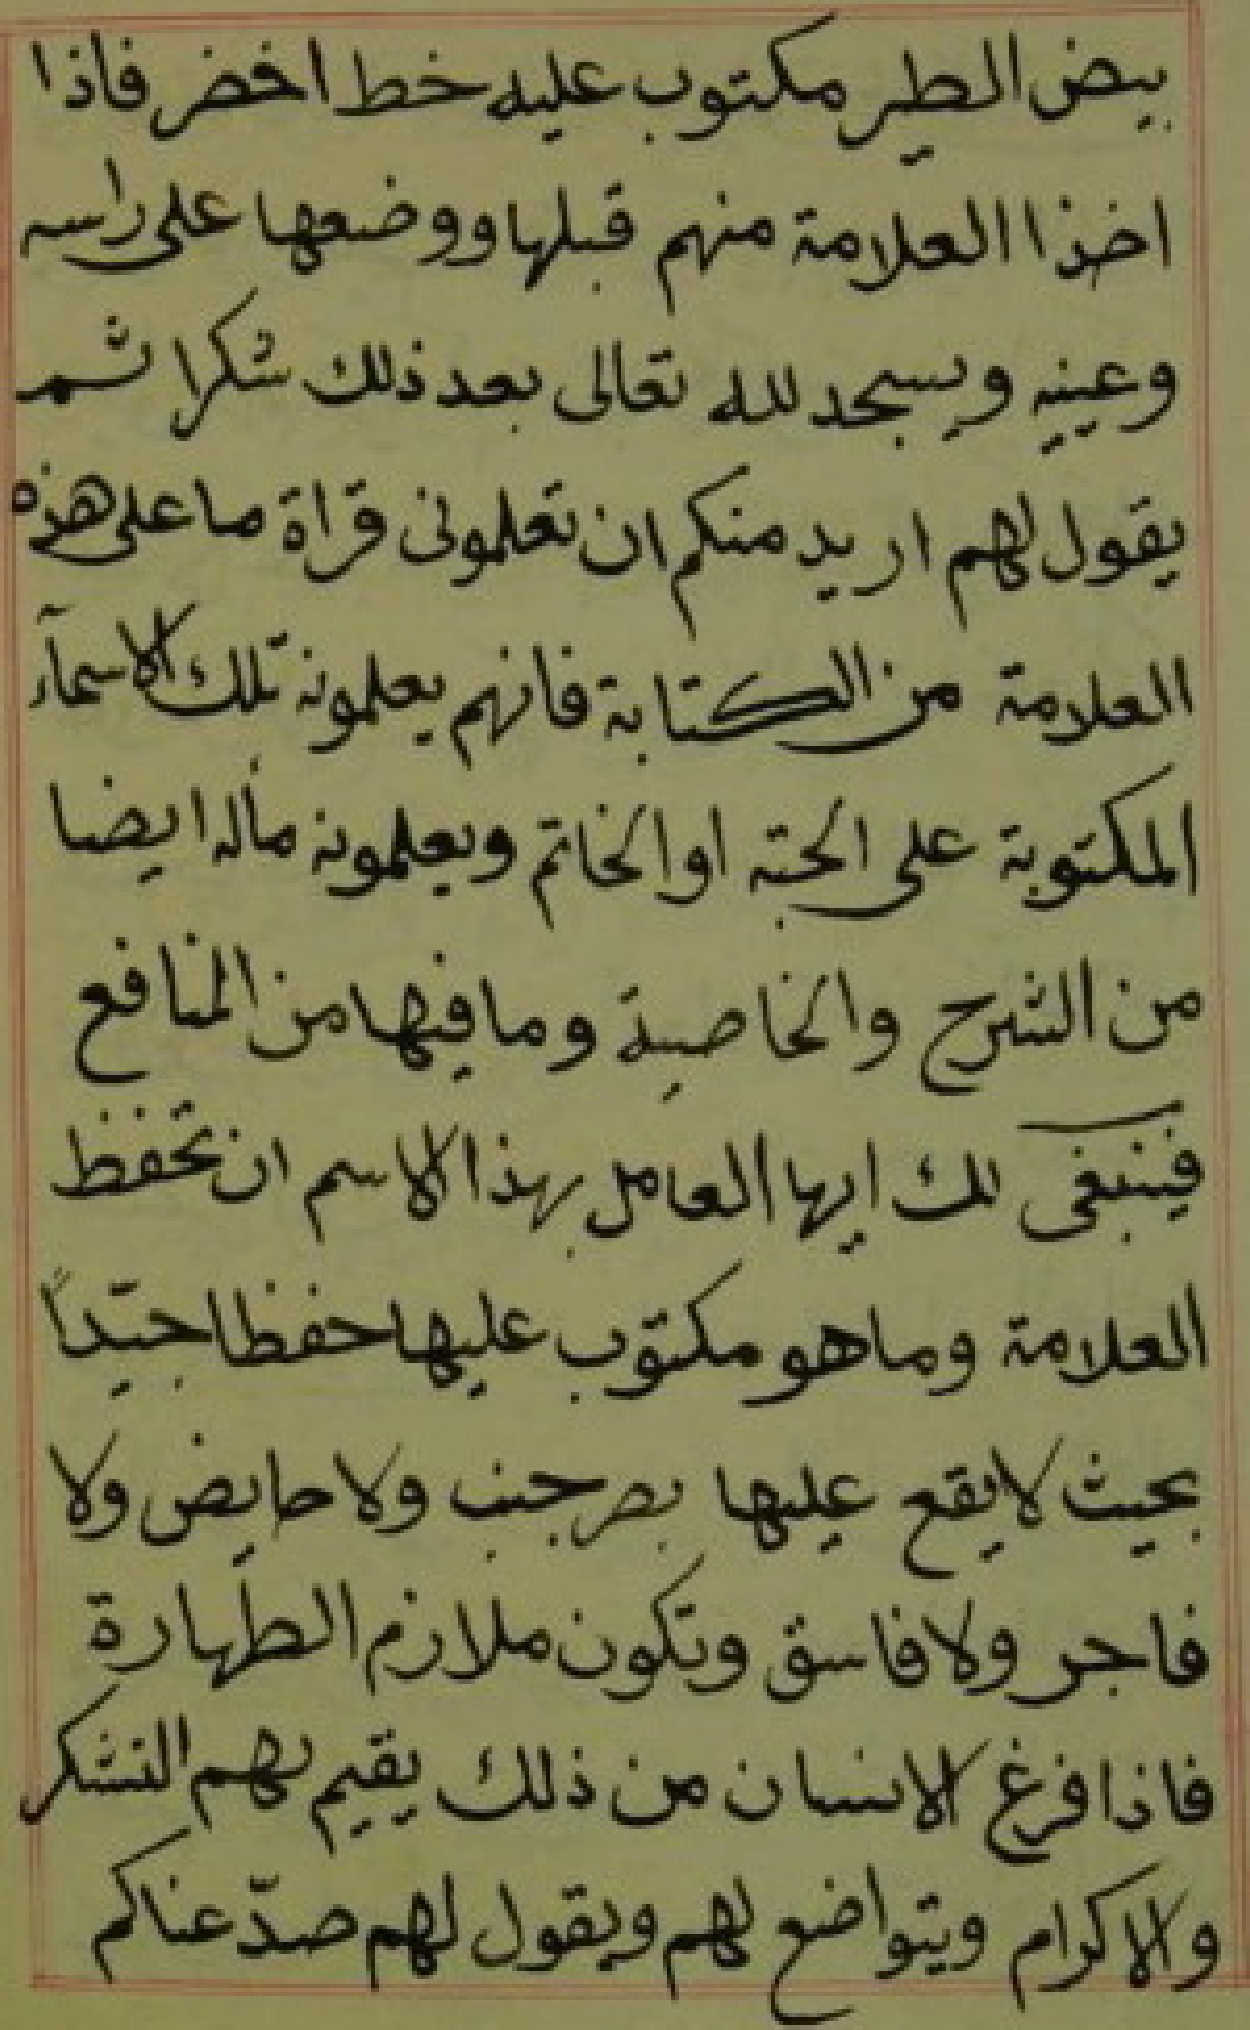 بيض الطير مكتوب عليه خط اخضر فاذا
اخذ العلامة منهم قبلها ووضعها على راسه
وعينيه ويسجد لله تعالى بعد ذلك شكرا ثم
يقول لهم اريد منكم ان تعلمونى قراة ما على هذه
العلامة من الكتابة فانهم يعلمونه تلك الاسمآء
المكتوبة على الحبة او الخاتم ويعلمونه ماله ايضا
من الشرح والخاصية وما فيها من المنافع
فينبغى لك ايها العامل بهذا الاسم ان تحفظ
العلامة وما هو مكتوب عليها حفظا جيّداً
بحيث لا يقع عليها بصر جنب ولا حايض ولا
فاجر ولا فاسق وتكون ملازم الطهارة
فاذا فرغ الانسان من ذلك يقيم لهم التشكر
والاكرام ويتواضع لهم ويقول لهم